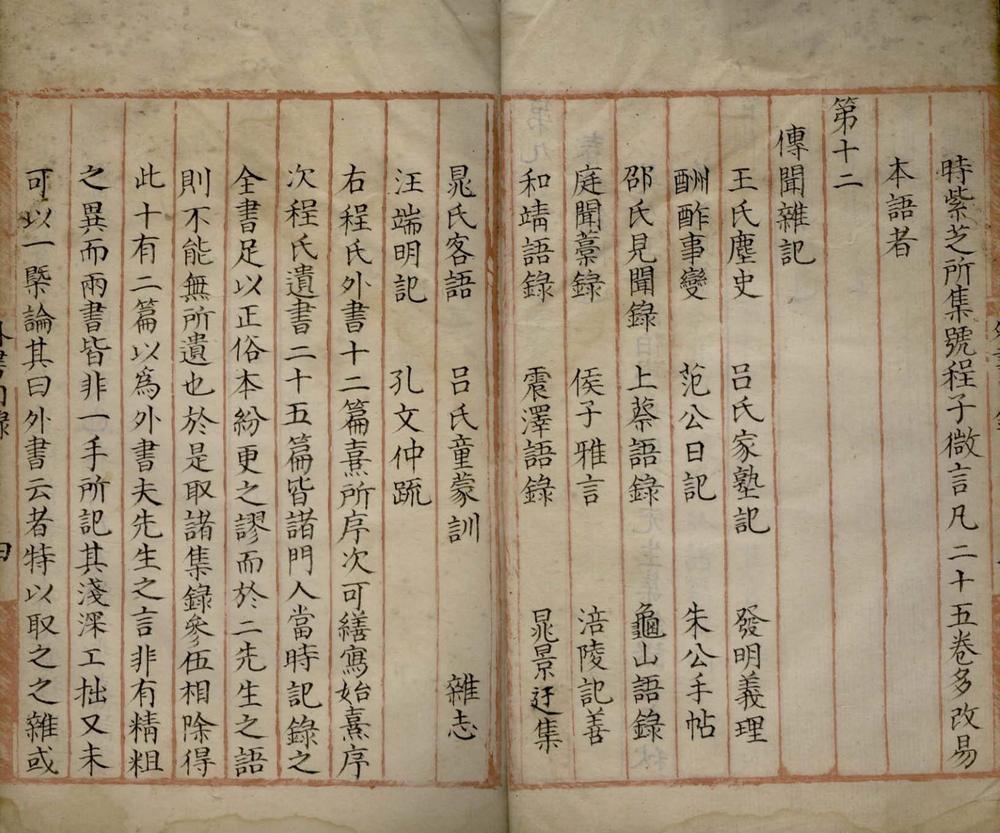 時紫芝所集號程子微言凡二十五卷多改易
本語者
第十二
傳聞雜記
王氏塵史 呂氏家塾記 發明義理
酬酢事變 范公日記 朱公手帖
邵氏見聞錄 上蔡語錄 龜山語錄
庭聞藁錄 侯子雅言 涪陵記善
和靖語錄 震澤語錄 晁景迂集
晁氏客語 呂氏童蒙訓 雜志
汪端明記 孔文仲䟽
右程氏外書十二篇熹所序次可繕寫始熹序
次程氏遺書二十五篇皆諸門人當時記錄之
全書足以正俗本紛更之謬而於二先生之語
則不能無所遺也於是取諸集錄參伍相除得
此十有二篇以爲外書夫先生之言非有精粗
之異而兩書皆非一手所記其淺深工拙又未
可以一槩論其曰外書云者特以取之之雜或